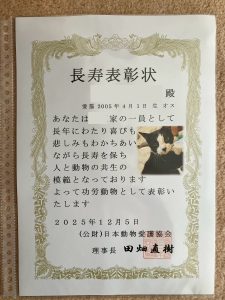 長寿表彰状
殿
愛猫 2005年4月1日 生 オス
あなたは 家の一員として
長年にわたり喜びも
悲しみもわかちあい
ながら長寿を保ち
人と動物の共生の
模範となっております
よって功労動物として表彰い
たします
2025年12月5日
(公財)日本動物愛護協会
理事長 田畑直樹